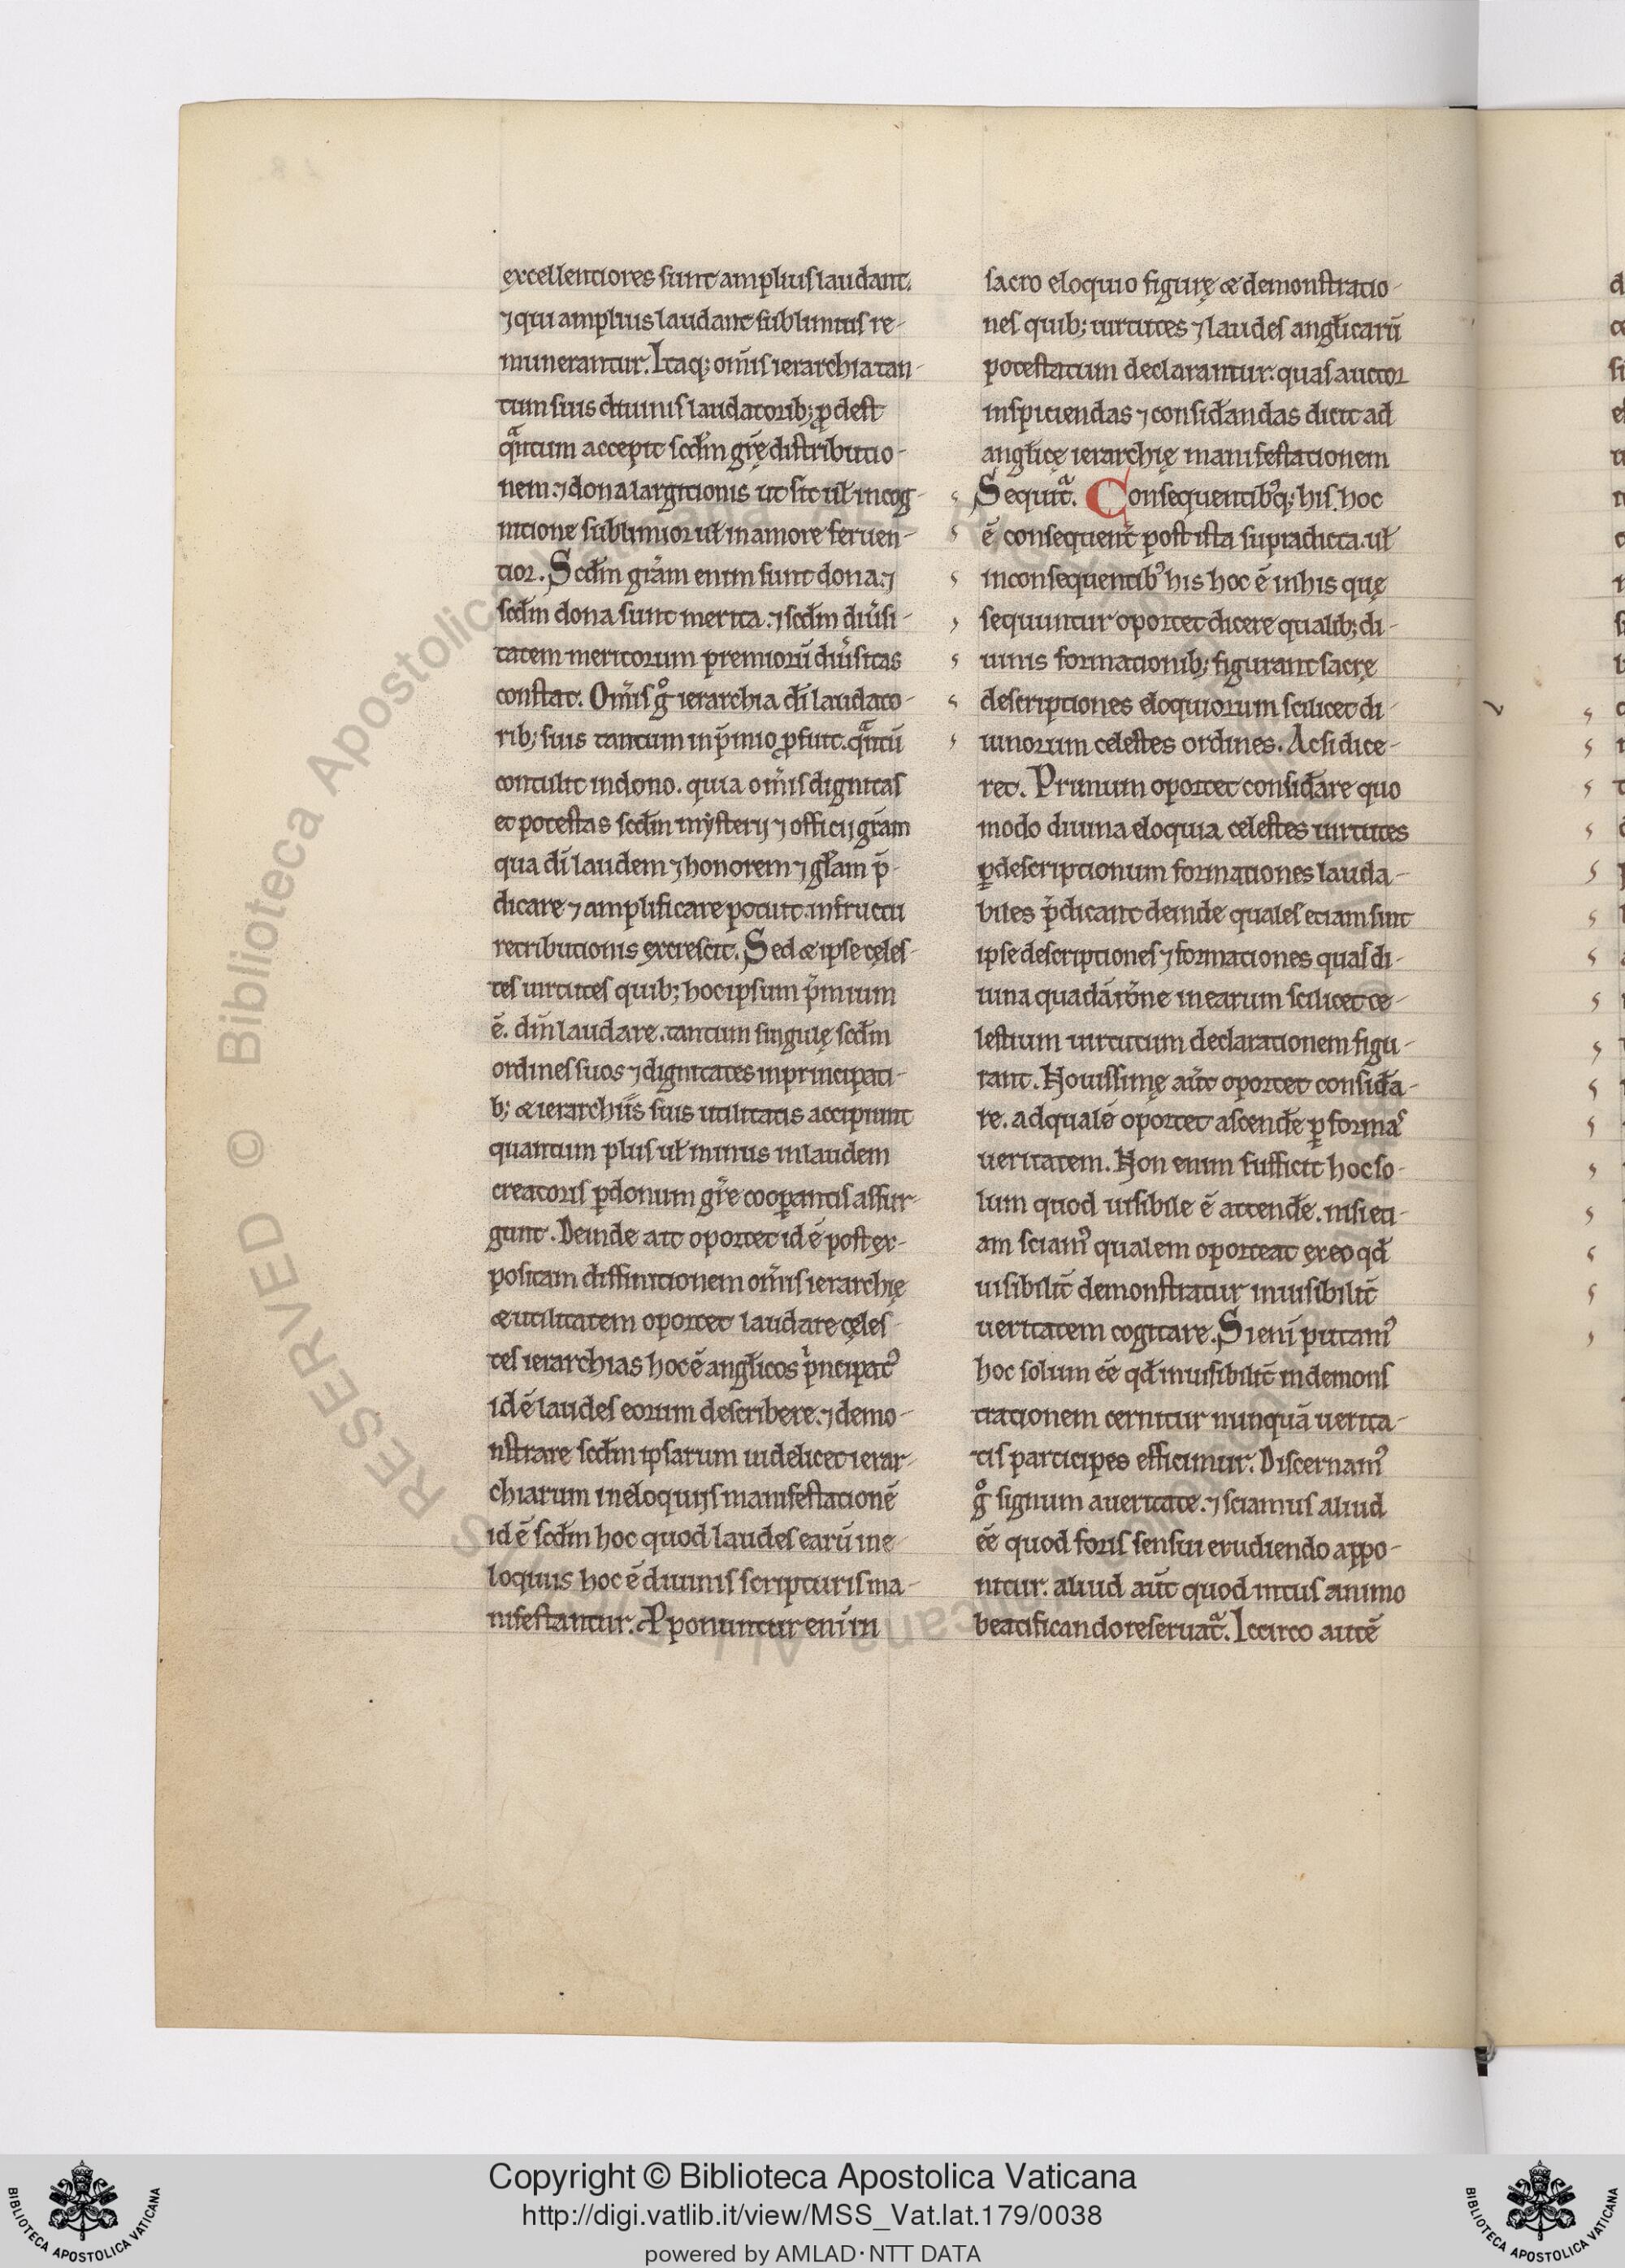 excellentiores sunt amplius laudant.
⁊ qui amplius laudant sublimius re-
munerantur. Itaq; om̄is ierarchia tan-
tum suis diuinis laudatorib; ꝓdest
qᷓntum accepit scd̄m gr̄ę distributio-
nem. ⁊ dona largitionis ut sit uł in cog-
nitione sublimior uł in amore feruen-
tior. Scd̄m grām enim sunt dona. ⁊
scd̄m dona sunt merita. ⁊ scd̄m diu̾si-
tatem meritorum premiorū diu̾sitas
constat. Om̄is gͦ ierarchia dī laudato-
rib; suis tantum in p̄mio ꝓfuit. qᷓntū
contulit in dono. quia om̄is dignitas
et potestas scd̄m mysterij ⁊ officij grām
qua dī laudem ⁊ honorem ⁊ głam p̄-
dicare ⁊ amplificare potuit. in fructu
retributionis excrescit. Sed & ipse cęles-
tes uirtutes quib; hoc ipsum p̄mium
ē. dīn laudare. tantum singulę scd̄m
ordines suos ⁊ dignitates in principati-
b; & ierarchiis suis utilitatis accipiunt
quantum plus uł minus in laudem
creatoris p̲ donum gr̄e coop̲antis assur-
gunt. Deinde ait oportet id ē post ex-
positam diffinitionem om̄is ierarchię
& utilitatem oportet laudare cęles-
tes ierarchias hoc ē angłicos pͥncipatꝰ
id ē laudes eorum describere. ⁊ demo-
nstrare scd̄m ipsarum uidelicet ierar-
chiarum in eloquijs manifestationē
id ē scd̄m hoc quod laudes earū in e-
loquiis hoc ē diuinis scripturis ma-
nifestantur. Apponuntur eni in
sacro eloquio figurę & demonstratio-
nes quib; uirtutes ⁊ laudes angłicarū
potestatum declarantur. quas auctor
inspiciendas ⁊ consid̄andas dicit ad
angłicę ierarchię manifestationem
Sequit̄ᷓ. Consequentibꝰq; his. hoc
ē consequent̄ post ista supradicta. uł
in consequentibꝰ his hoc ē in his quę
sequuntur oportet dicere qualib; di-
uinis formationib; figurant sacrę
descriptiones eloquiorum scilicet di-
uinorum celestes ordines. Ac si dice-
ret. Primum oportet consid̄are quo
modo diuina eloquia celestes uirtutes
p̲ descriptionum formationes lauda-
biles p̄dicant deinde quales etiam sint
ipse descriptiones ⁊ formationes quas di-
uina quadā rōne in earum scilicet ce-
lestium uirtutum declarationem figu-
rant. Nouissimę aūt oportet consid̄a-
re. ad qualē oportet ascend̄e p̲ formas
ueritatem. Non enim sufficit hoc so-
lum quod uisibile ē attend̄e. nisi eti-
am sciamꝰ qualem oporteat ex eo qd̄
uisibilit̄ demonstratur inuisibilit̄
ueritatem cogitare. Si enī putamꝰ
hoc solum ēe qd̄ inuisibilit̄ in demons
trationem cernitur nunquā uerita-
tis participes efficimur. Discernamꝰ
gͦ signum a ueritate. ⁊ sciamus aliud
ēe quod foris sensui erudiendo appo-
nitur. aliud aūt quod intus animo
beatificando reseruat̄ᷓ. Iccirco autē
Copyright © Biblioteca Apostolica Vaticana
http://digi.vatlib.it/view/MSS_Vat.lat.179/0038
powered by AMLAD·NTT DATA
BIBLIOTECA APOSTOLICA VATICANA
BIBLIOTECA APOSTOLICA VATICANA